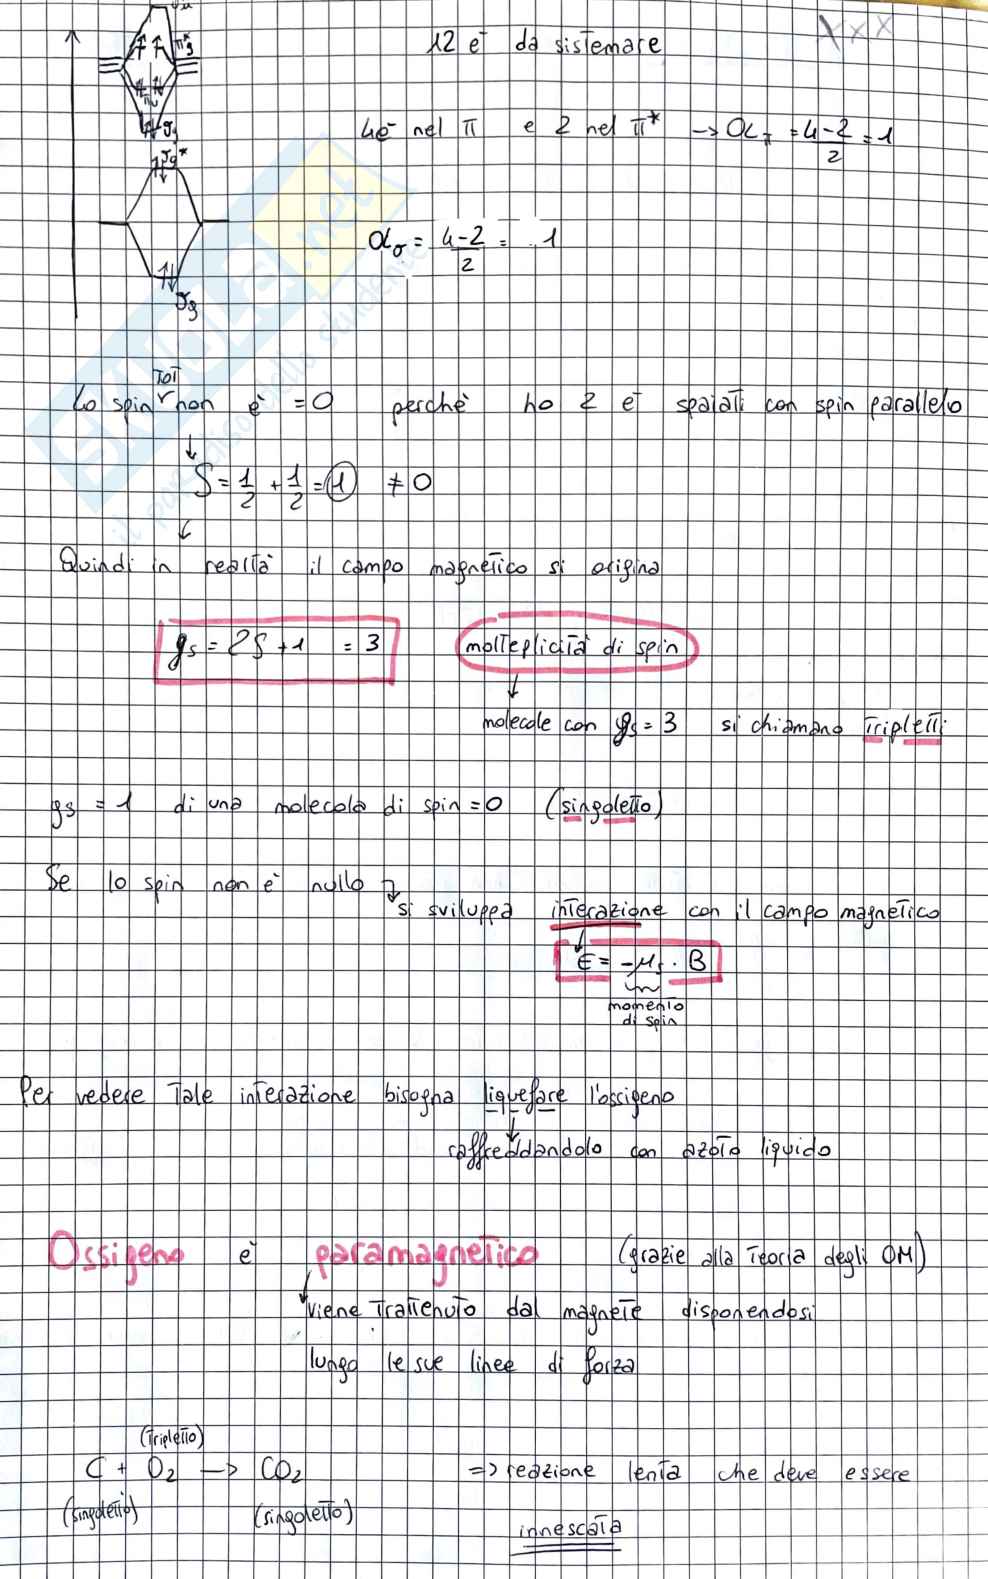 12 e⁻ da sistemare
4e⁻ nel π e 2 nel π* → OLπ = 4-2/2 = 1
OLσ = 4-2/2 = 1
σg*
σg
TOT
Lo spin non è = 0 perchè ho 2 e⁻ spaiati con spin parallelo
S = 1/2 + 1/2 = 1 ≠ 0
Quindi in realtà il campo magnetico si origina
gs = 2S + 1 = 3 molteplicità di spin
molecole con gs = 3 si chiamano Tripletti
gs = 1 di una molecola di spin = 0 (singoletto)
Se lo spin non è nullo
si sviluppa interazione con il campo magnetico
E = -μs · B
momento
di spin
Per vedere Tale interazione bisogna liquefare l'ossigeno
raffreddandolo con azoto liquido
Ossigeno è paramagnetico (grazie alla Teoria degli OM)
viene Trattenuto dal magnete disponendosi
lungo le sue linee di forza
(Tripletto)
C + O₂ → CO₂ => reazione lenta che deve essere
(singoletto) (singoletto) innescata
SKUOLA.net
il paradiso dello studente